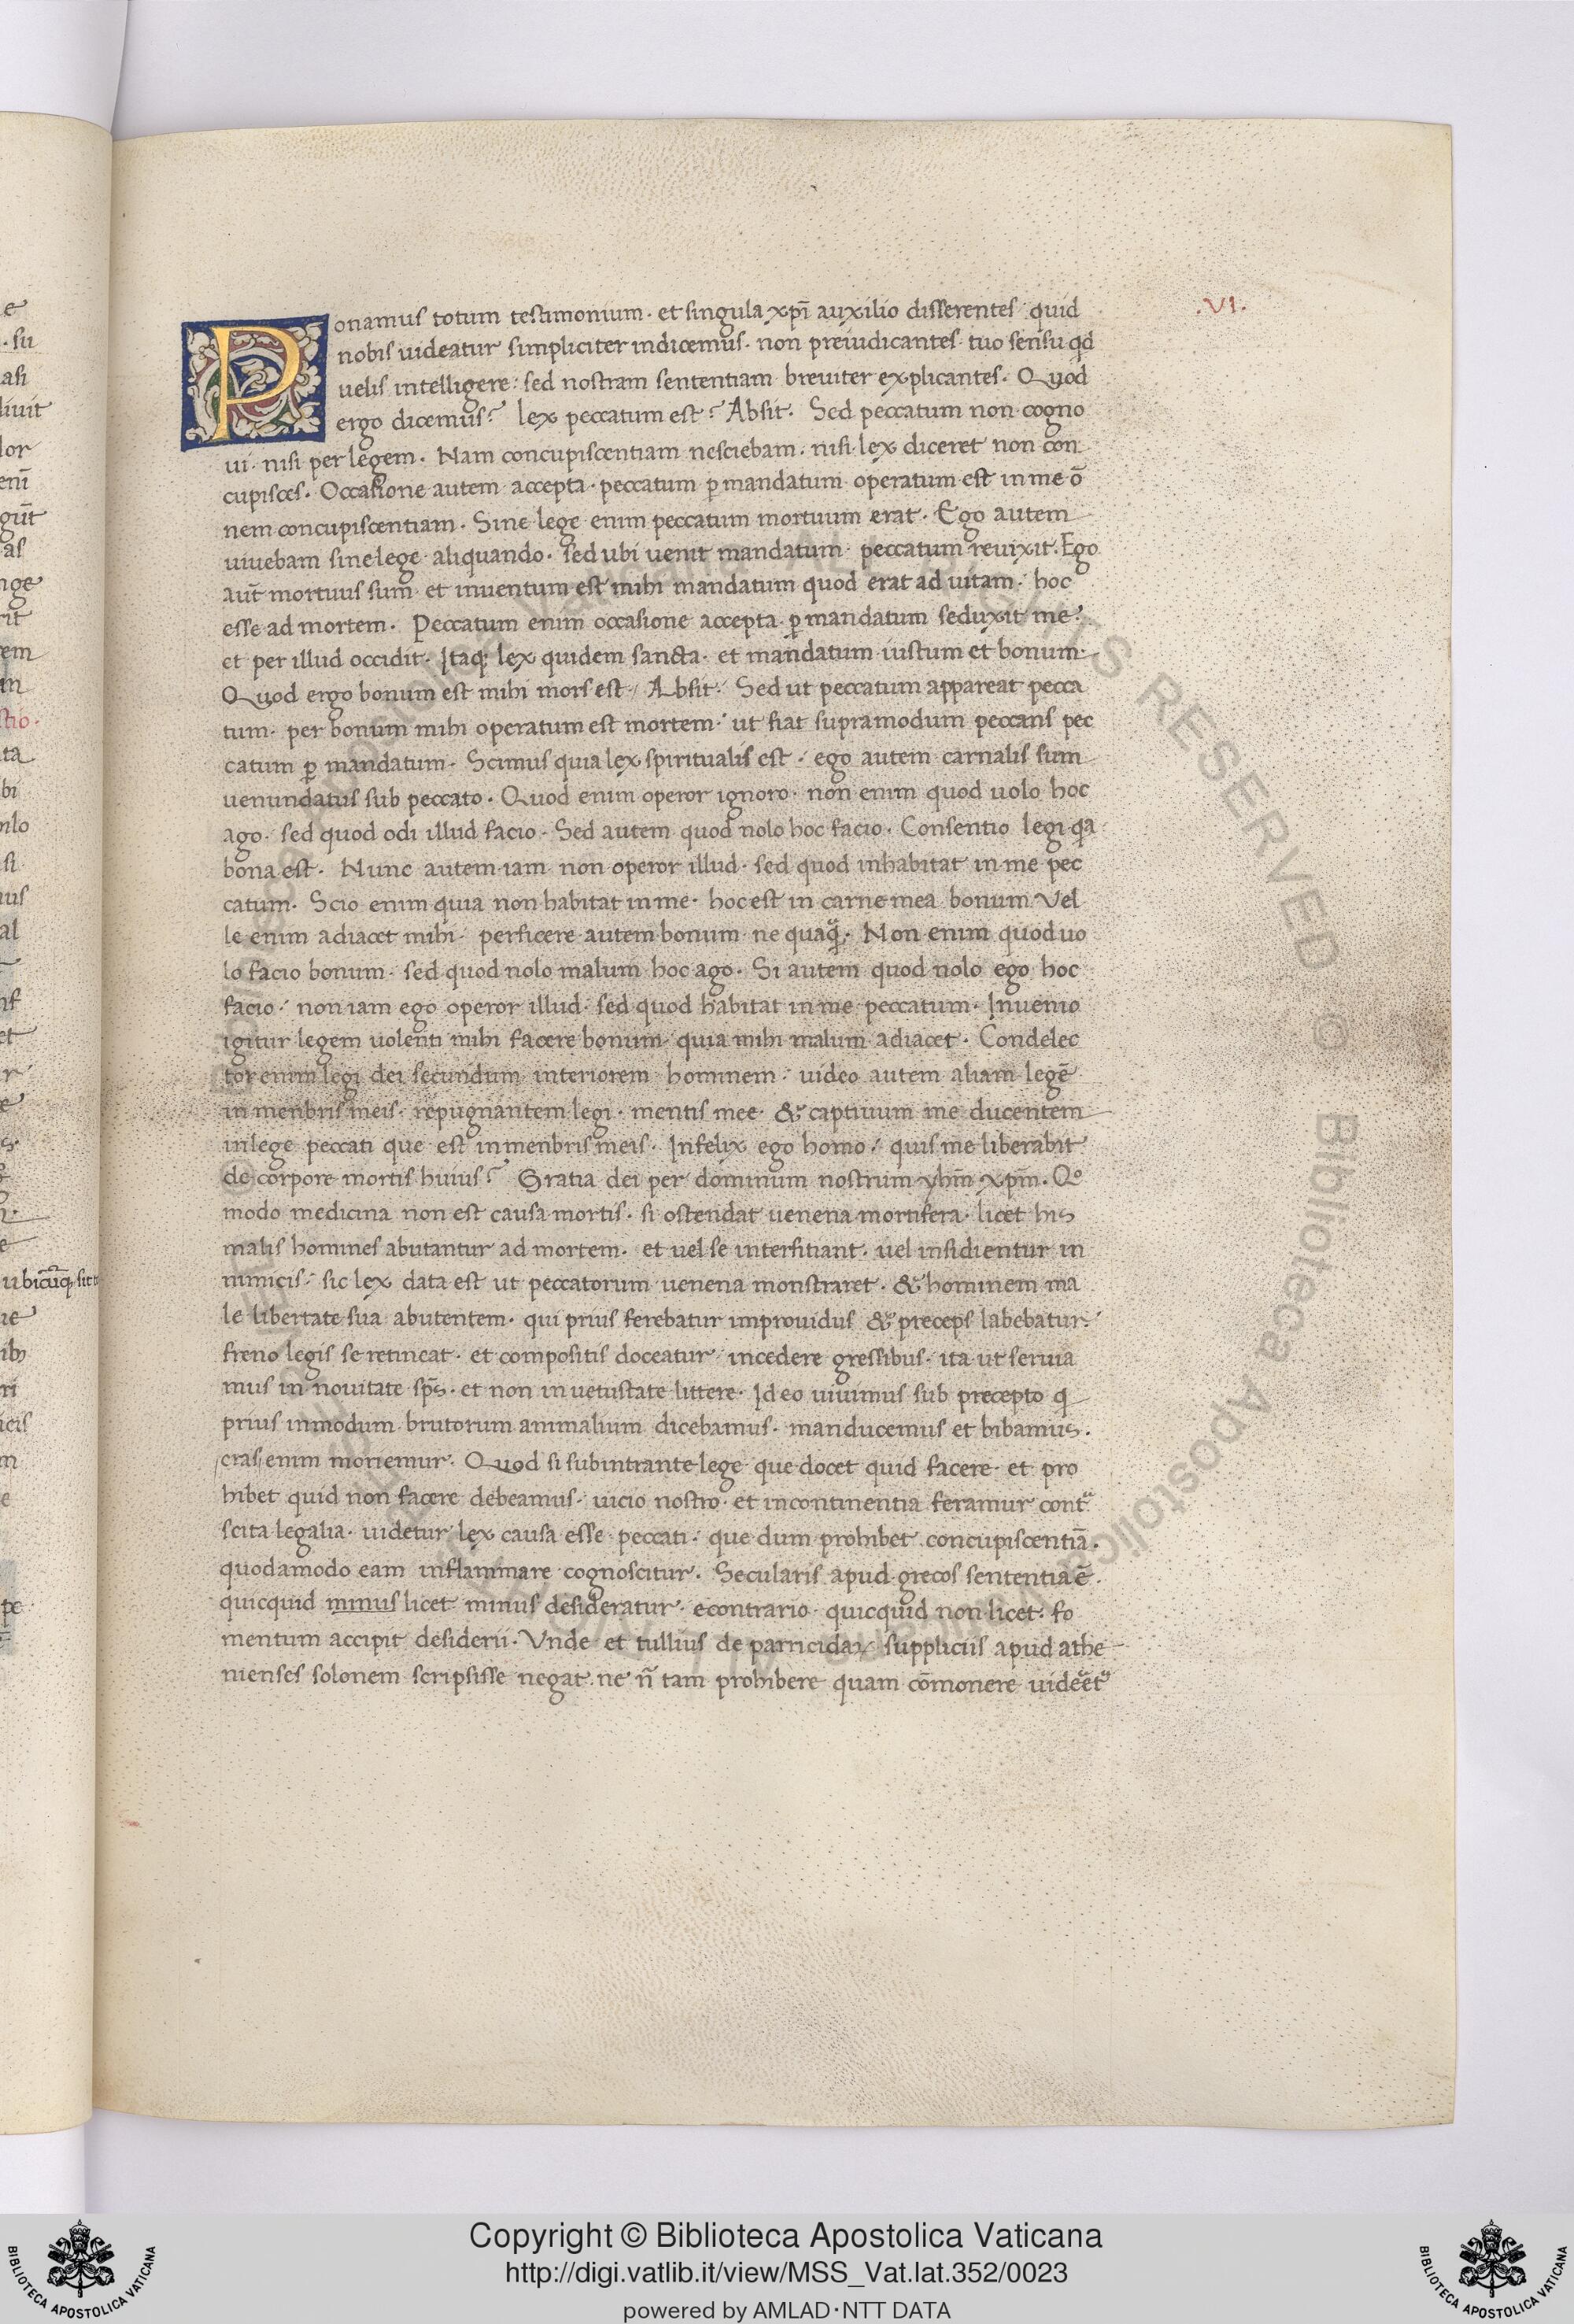 .VI.
Ponamus totum testimonium · et singula xp̄i auxilio disserentes · quid
nobis uideatur simpliciter indicemus · non preiudicantes · tuo sensu qd
uelis intelligere : sed nostram sententiam breuiter explicantes · Quod
ergo dicemus? lex peccatum est? Absit · Sed peccatum non cogno
ui · nisi per legem · Nam concupiscentiam nesciebam · nisi lex diceret non con
cupisces · Occasione autem accepta · peccatum ꝑ mandatum operatum est in me ō
nem concupiscentiam · Sine lege enim peccatum mortuum erat · Ego autem
uiuebam sine lege aliquando · sed ubi uenit mandatum peccatum reuixit · Ego
aut̄ mortuus sum et inuentum est mihi mandatum quod erat ad uitam · hoc
esse ad mortem · Peccatum enim occasione accepta ꝑ mandatum seduxit me ·
et per illud occidit · Itaq; lex quidem sancta · et mandatum iustum et bonum ·
Quod ergo bonum est mihi mors est / Absit · Sed ut peccatum appareat pecca
tum · per bonum mihi operatum est mortem · ut fiat supra modum peccans pec
catum ꝑ mandatum · Scimus quia lex spiritualis est · ego autem carnalis sum
uenundatus sub peccato · Quod enim operor ignoro · non enim quod uolo hoc
ago · sed quod odi illud facio · Sed autem quod nolo hoc facio · Consentio legi qa
bona est · Nunc autem iam non operor illud · sed quod inhabitat in me pec
catum · Scio enim quia non habitat in me · hoc est in carne mea bonum Vel
le enim adiacet mihi · perficere autem bonum ne quaq̃ · Non enim quod uo
lo facio bonum · sed quod nolo malum hoc ago · Si autem quod nolo ego hoc
facio · non iam ego operor illud · sed quod habitat in me peccatum · Inuenio
igitur legem uolenti mihi facere bonum · quia mihi malum adiacet · Condelec
tor enim legi dei secundum interiorem hominem · uideo autem aliam legē
in menbris meis · repugnantem legi · mentis mee · & captiuum me ducentem
in lege peccati que est in menbris meis · Infelix ego homo · quis me liberabit
de corpore mortis huius? Gratia dei per dominum nostrum yhm̄ xpm̄ · Qº
modo medicina non est causa mortis · si ostendat uenena mortifera · licet his
malis homines abutantur ad mortem · et uel se interfitiant · uel insidientur in
nimicis · sic lex data est ut peccatorum uenena monstraret · & hominem ma
le libertate sua abutentem · qui prius ferebatur improuidus & preceps labebatur ·
freno legis se retineat · et compositis doceatur incedere gressibus · ita ut serui a
mus in nouitate sp̄s · et non in uetustate littere · Id eo uiuimus sub precepto q
prius in modum brutorum animalium dicebamus · manducemus et bibamus ·
cras enim moriemur · Quod si subintrante lege que docet quid facere et pro
hibet quid non facere debeamus · uicio nostro · et incontinentia feramur contᵃ
scita legalia · uidetur lex causa esse peccati · que dum prohibet concupiscentiā ·
quodamodo eam inflammare cognoscitur · Secularis apud grecos sententia ē ·
quicquid minus licet minus desideratur · econtrario quicquid non licet · fo
mentum accipit desiderii · Vnde et tullius de parricidaꝝ suppliciis apud athe
nienses solonem scripsisse negat · ne ñ tam prohibere quam cōmonere uideret᷑
Copyright © Biblioteca Apostolica Vaticana
http://digi.vatlib.it/view/MSS_Vat.lat.352/0023
powered by AMLAD · NTT DATA
BIBLIOTECA APOSTOLICA VATICANA
BIBLIOTECA APOSTOLICA VATICANA